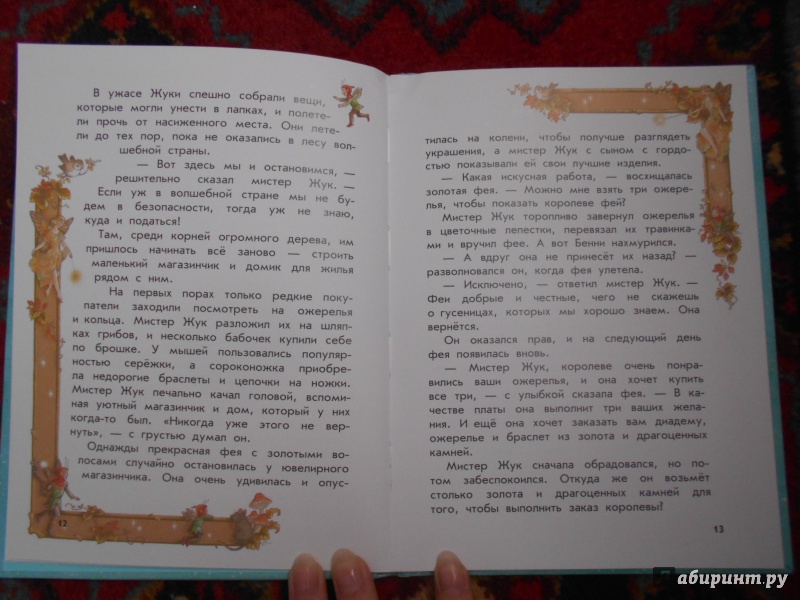 В ужасе Жуки спешно собрали вещи,
которые могли унести в лапках, и полете-
ли прочь от насиженного места. Они лете-
ли до тех пор, пока не оказались в лесу вол-
шебной страны.
— Вот здесь мы и остановимся, —
решительно сказал мистер Жук. —
Если уж в волшебной стране мы не бу-
дем в безопасности, тогда уж не знаю,
куда и податься!
Там, среди корней огромного дерева, им
пришлось начинать всё заново — строить
маленький магазинчик и домик для жилья
рядом с ним.
На первых порах только редкие поку-
патели заходили посмотреть на ожерелья
и кольца. Мистер Жук разложил их на шляп-
ках грибов, и несколько бабочек купили себе
по брошке. У мышей пользовались популяр-
ностью серёжки, а сороконожка приобре-
ла недорогие браслеты и цепочки на ножки.
Мистер Жук печально качал головой, вспоми-
ная уютный магазинчик и дом, который у них
когда-то был. «Никогда уже этого не вер-
нуть», — с грустью думал он.
Однажды прекрасная фея с золотыми во-
лосами случайно остановилась у ювелирного
магазинчика. Она очень удивилась и опус-
12
тилась на колени, чтобы получше разглядеть
украшения, а мистер Жук с сыном с гордо-
стью показывали ей свои лучшие изделия.
— Какая искусная работа, — восхищалась
золотая фея. — Можно мне взять три ожере-
лья, чтобы показать королеве фей?
Мистер Жук торопливо завернул ожерелья
в цветочные лепестки, перевязал их травинка-
ми и вручил фее. А вот Бенни нахмурился.
— А вдруг она не принесёт их назад? —
разволновался он, когда фея улетела.
— Исключено, — ответил мистер Жук. —
Феи добрые и честные, чего не скажешь
о гусеницах, которых мы хорошо знаем. Она
вернётся.
Он оказался прав, и на следующий день
фея появилась вновь.
— Мистер Жук, королеве очень понра-
вились ваши ожерелья, и она хочет купить
все три, — с улыбкой сказала фея. — В ка-
честве платы она выполнит три ваших жела-
ния. И ещё она хочет заказать вам диадему,
ожерелье и браслет из золота и драгоценных
камней.
Мистер Жук сначала обрадовался, но по-
том забеспокоился. Откуда же он возьмёт
столько золота и драгоценных камней для
того, чтобы выполнить заказ королевы?
13
абиринт.ру